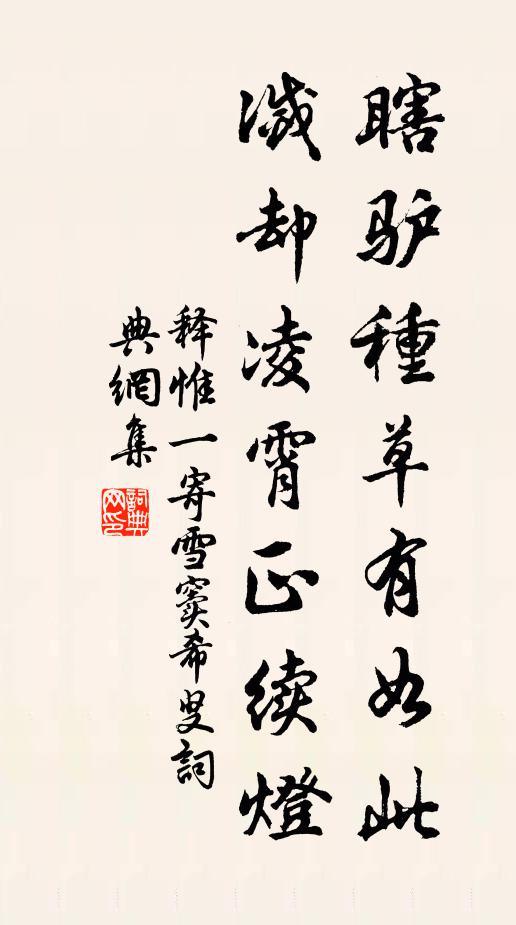 瞎驴種草有如此
滅却凌霄正续燈
释惟一寄雪窦希叟詞
典網集
詞典网印